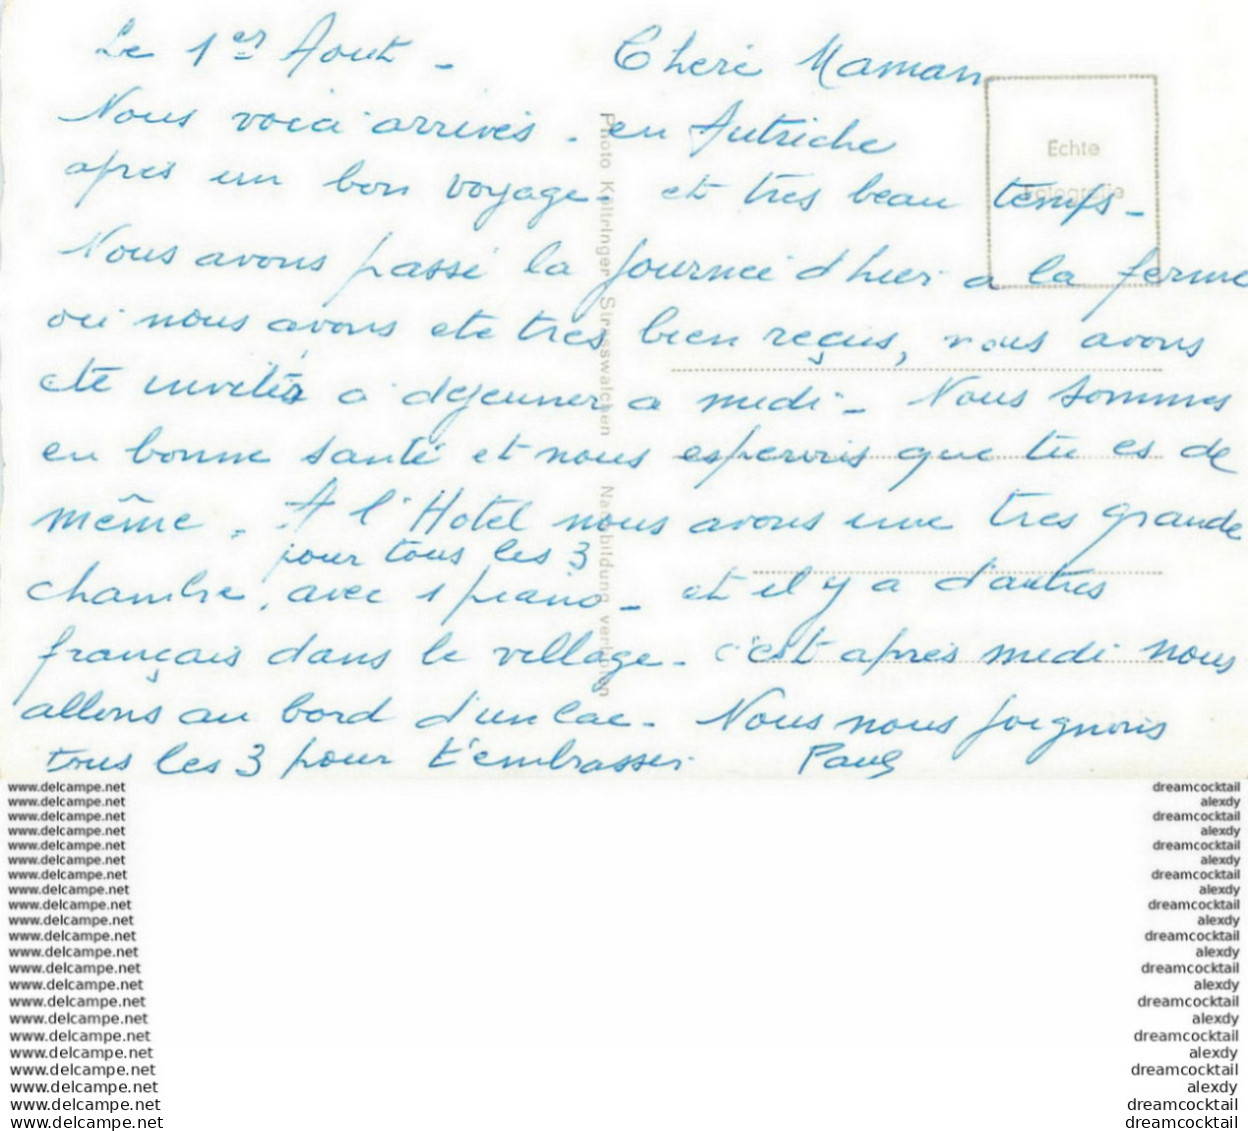 Le 1er Aout - Cheri Maman
Nous voici arrivés - en Autriche
apres un bon voyage, et tres beau temps -
Nous avons passé la journée d'hier a la ferme
ou nous avons ete tres bien reçus, nous avons
ete invités a dejeuner a midi - Nous sommes
en bonne santé et nous esperons que tu es de
même. A l'Hotel nous avons une tres grande
pour tous les 3
chambre, avec 1 piano - et il y a d'autres
français dans le village - c'est après midi nous
allons au bord d'un lac - Nous nous joignons
tous les 3 pour t'embrasser Paul
Echte
Fotografie
Photo Koltringer Strasswalchen Nachbildung verboten
www.delcampe.net dreamcocktail
www.delcampe.net alexdy
www.delcampe.net dreamcocktail
www.delcampe.net alexdy
www.delcampe.net dreamcocktail
www.delcampe.net alexdy
www.delcampe.net dreamcocktail
www.delcampe.net alexdy
www.delcampe.net dreamcocktail
www.delcampe.net alexdy
www.delcampe.net dreamcocktail
www.delcampe.net alexdy
www.delcampe.net dreamcocktail
www.delcampe.net alexdy
www.delcampe.net dreamcocktail
www.delcampe.net alexdy
www.delcampe.net dreamcocktail
www.delcampe.net alexdy
www.delcampe.net dreamcocktail
www.delcampe.net alexdy
www.delcampe.net dreamcocktail
www.delcampe.net dreamcocktail